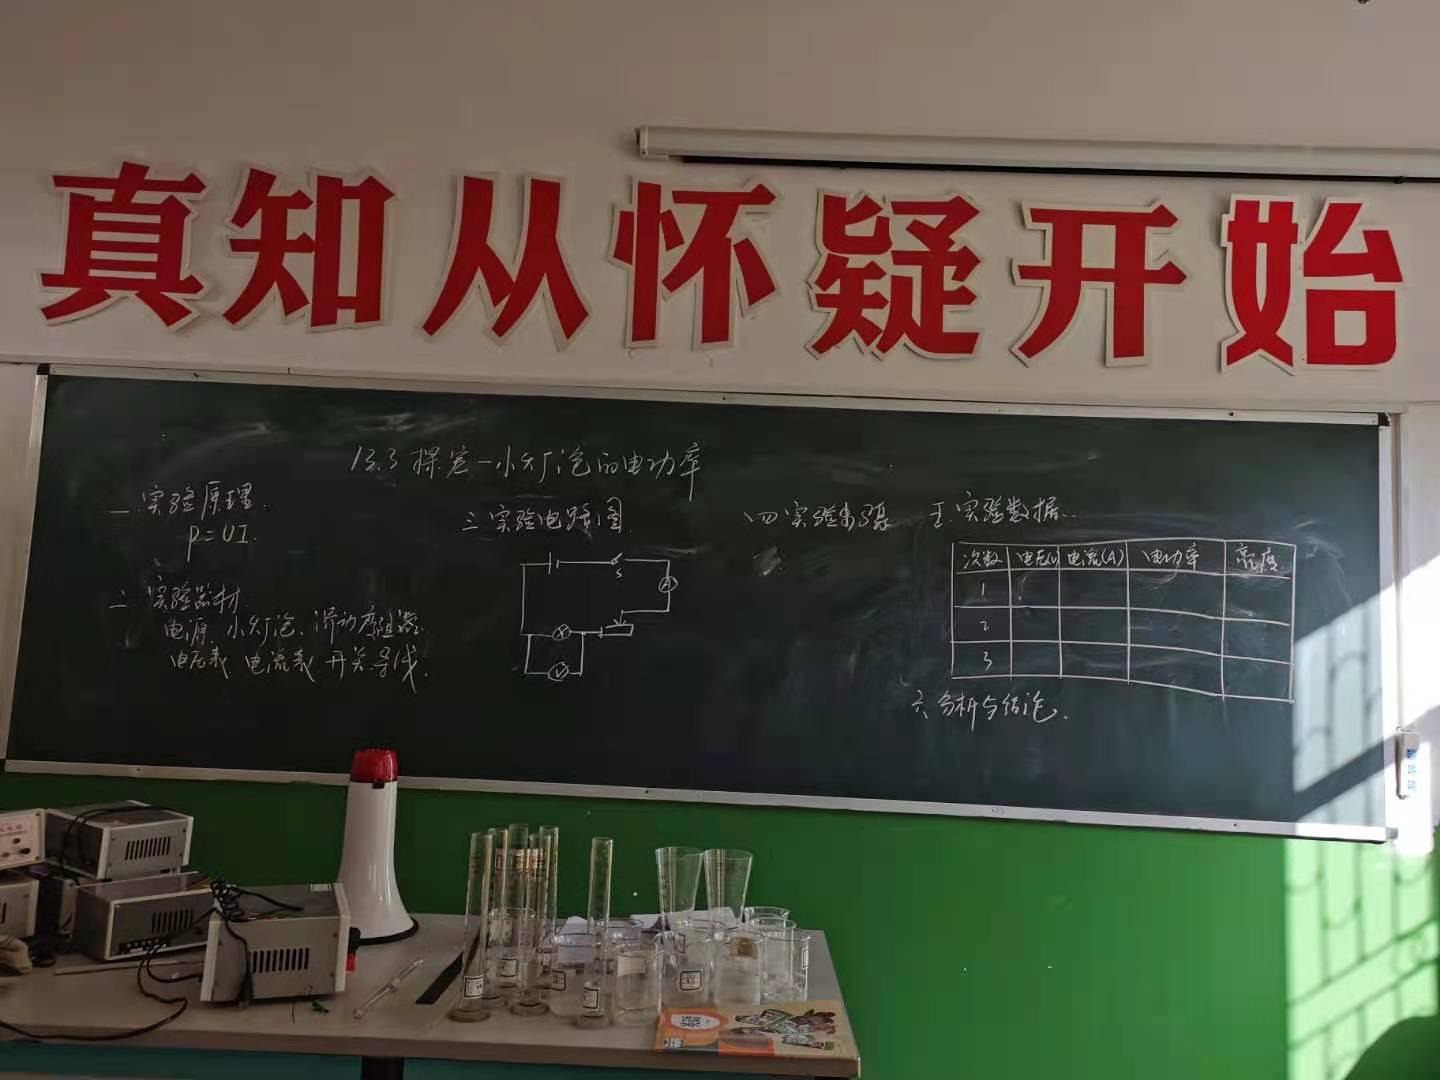 真知从怀疑开始
13.3 探究-小灯泡的电功率
一、实验原理.
P=UI.
二、实验器材
电源、小灯泡、滑动变阻器、
电压表 电流表 开关 导线.
三、实验电路图
S
A
V
四 实验步骤
五、实验数据.
次数 电压(V) 电流(A) 电功率 亮度
1
2
3
六、分析与结论.